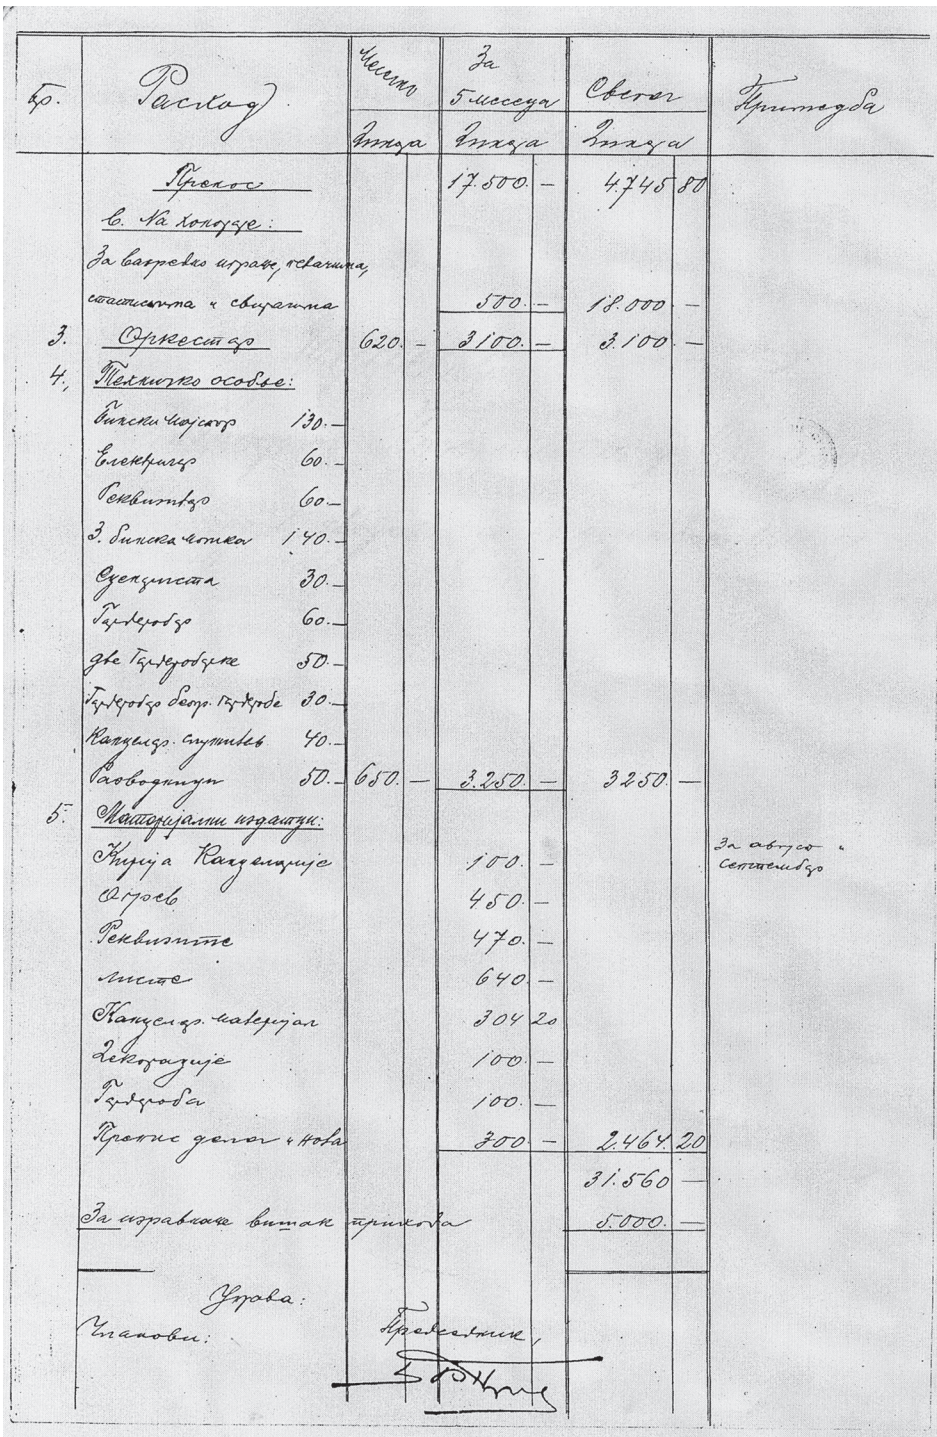 Бр. Расход Месечно За 5 месеца Свега Примедба
Динара Динара Динара
Пренос 17.500.— 4.745 80
в. На хонораре:
За ванредно играње, певачима,
статистима и свирачима 500.— 18.000.—
3. Оркестар 620.— 3100.— 3.100.—
4., Техничко особље:
Бински мајстор 130.—
Електричар 60.—
Реквизитар 60.—
3. бинска момка 140.—
30.—
Гардеробар 60.—
две Гардеробарке 50.—
Гардеробар 30.—
Канцелар. служитељ 40.—
Разводници 50.— 650.— 3.250.— 3250.—
5. Материјални издатци:
Кирија Канцеларије 100.— За август и
септембар
Огрев 450.—
Реквизите 470.—
листе 640.—
Канцелар. материјал 304 20
Декорације 100.—
Гардероба 100.—
Препис дела и нова 300.— 2.464. 20
31.560 —
За изравнање вишак прихода 5.000.—
Управа:
Чланови: Председник,